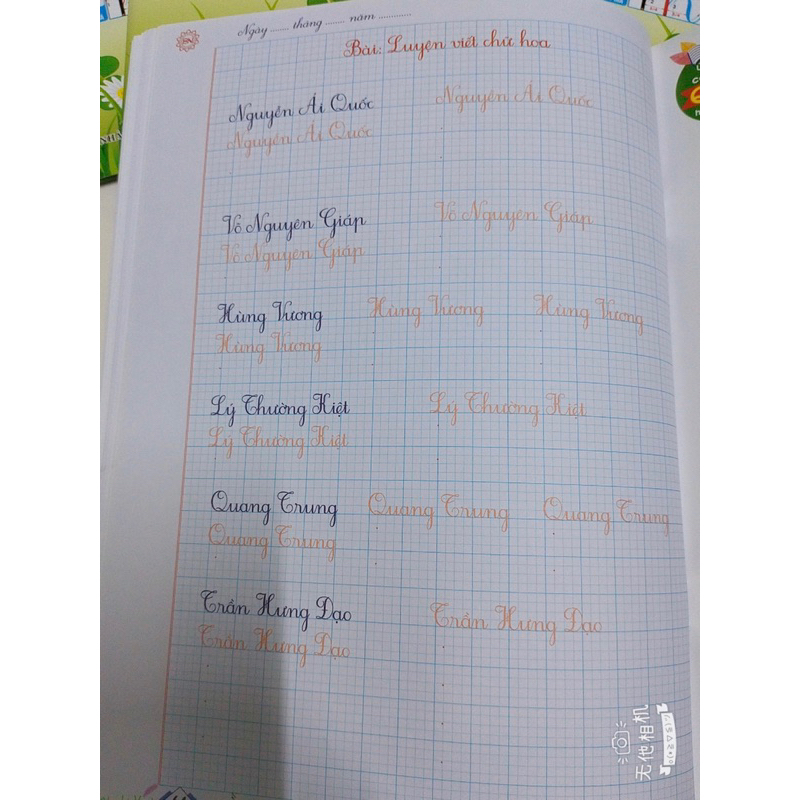 Ngày ....... tháng ....... năm ............
Bài: Luyện viết chữ hoa
Nguyễn Ái Quốc Nguyễn Ái Quốc
Nguyễn Ái Quốc
Võ Nguyên Giáp Võ Nguyên Giáp
Võ Nguyên Giáp
Hùng Vương Hùng Vương Hùng Vương
Hùng Vương
Lý Thường Kiệt Lý Thường Kiệt
Lý Thường Kiệt
Quang Trung Quang Trung Quang Trung
Quang Trung
Trần Hưng Đạo Trần Hưng Đạo
Trần Hưng Đạo
无他相机